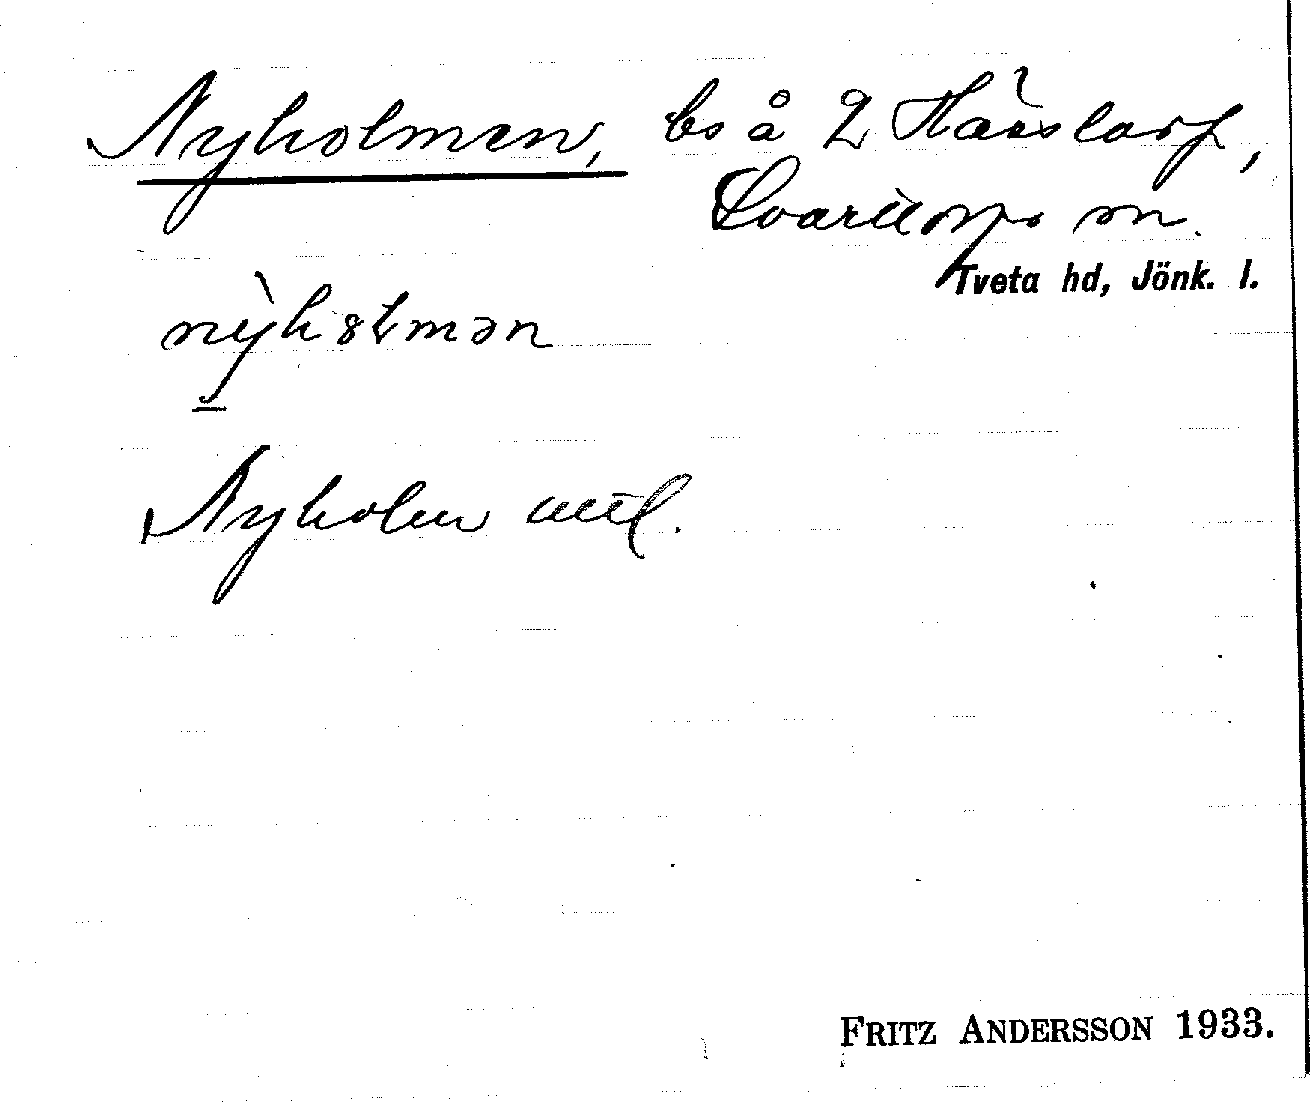 Nyholmen, bs å 2 Hårstorp,
Svarttorps sn.
Tveta hd, Jönk. l.
nỳhɷlmən
Nyholm uttl.
FRITZ ANDERSSON 1933.